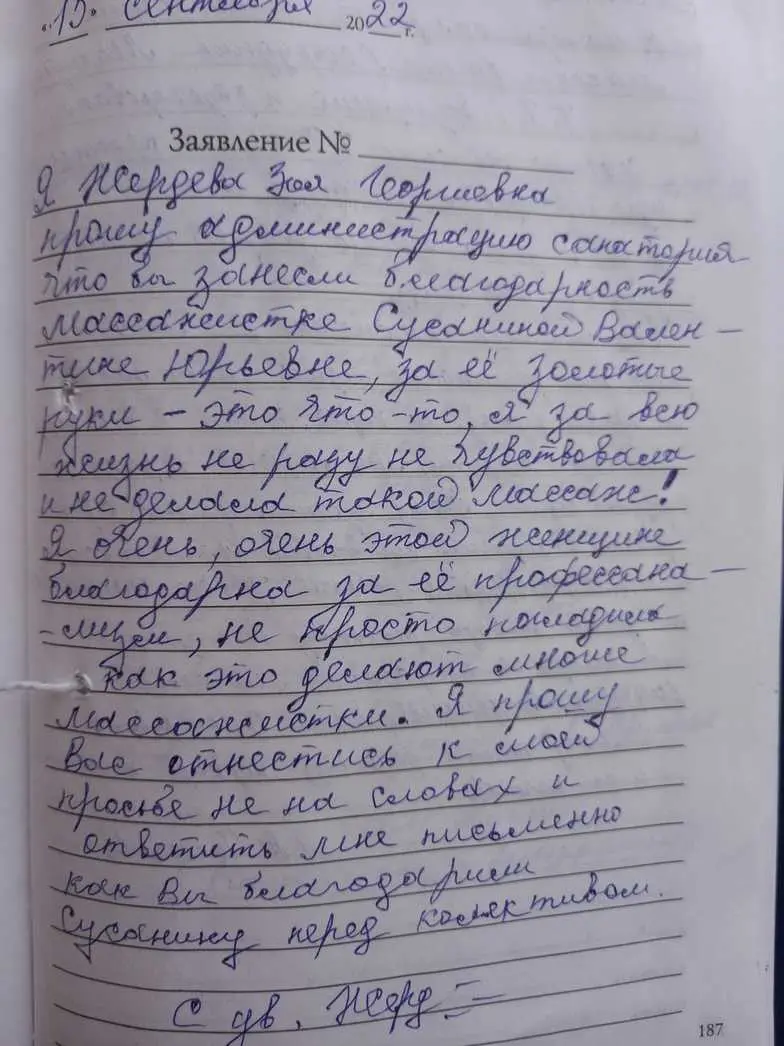 "15" сентября 2022 г.
Заявление №
Я Жердева Зоя Георгиевна
прошу администрацию санатория
что бы занесли благодарность
массажистке Сусаниной Вален-
тине Юрьевне, за её золотые
руки - это что-то, я за всю
жизнь не разу не чувствовала
и не делала такой массаж!
Я очень, очень этой женщине
благодарна за её профессана-
-лизм, не просто погладила
как это делают многие
массожистки. Я прошу
Вас отнестись к моей
просьбе не на словах и
ответить мне письменно
как Вы благодарили
Сусанину перед колективом.
С ув. Жерд
187